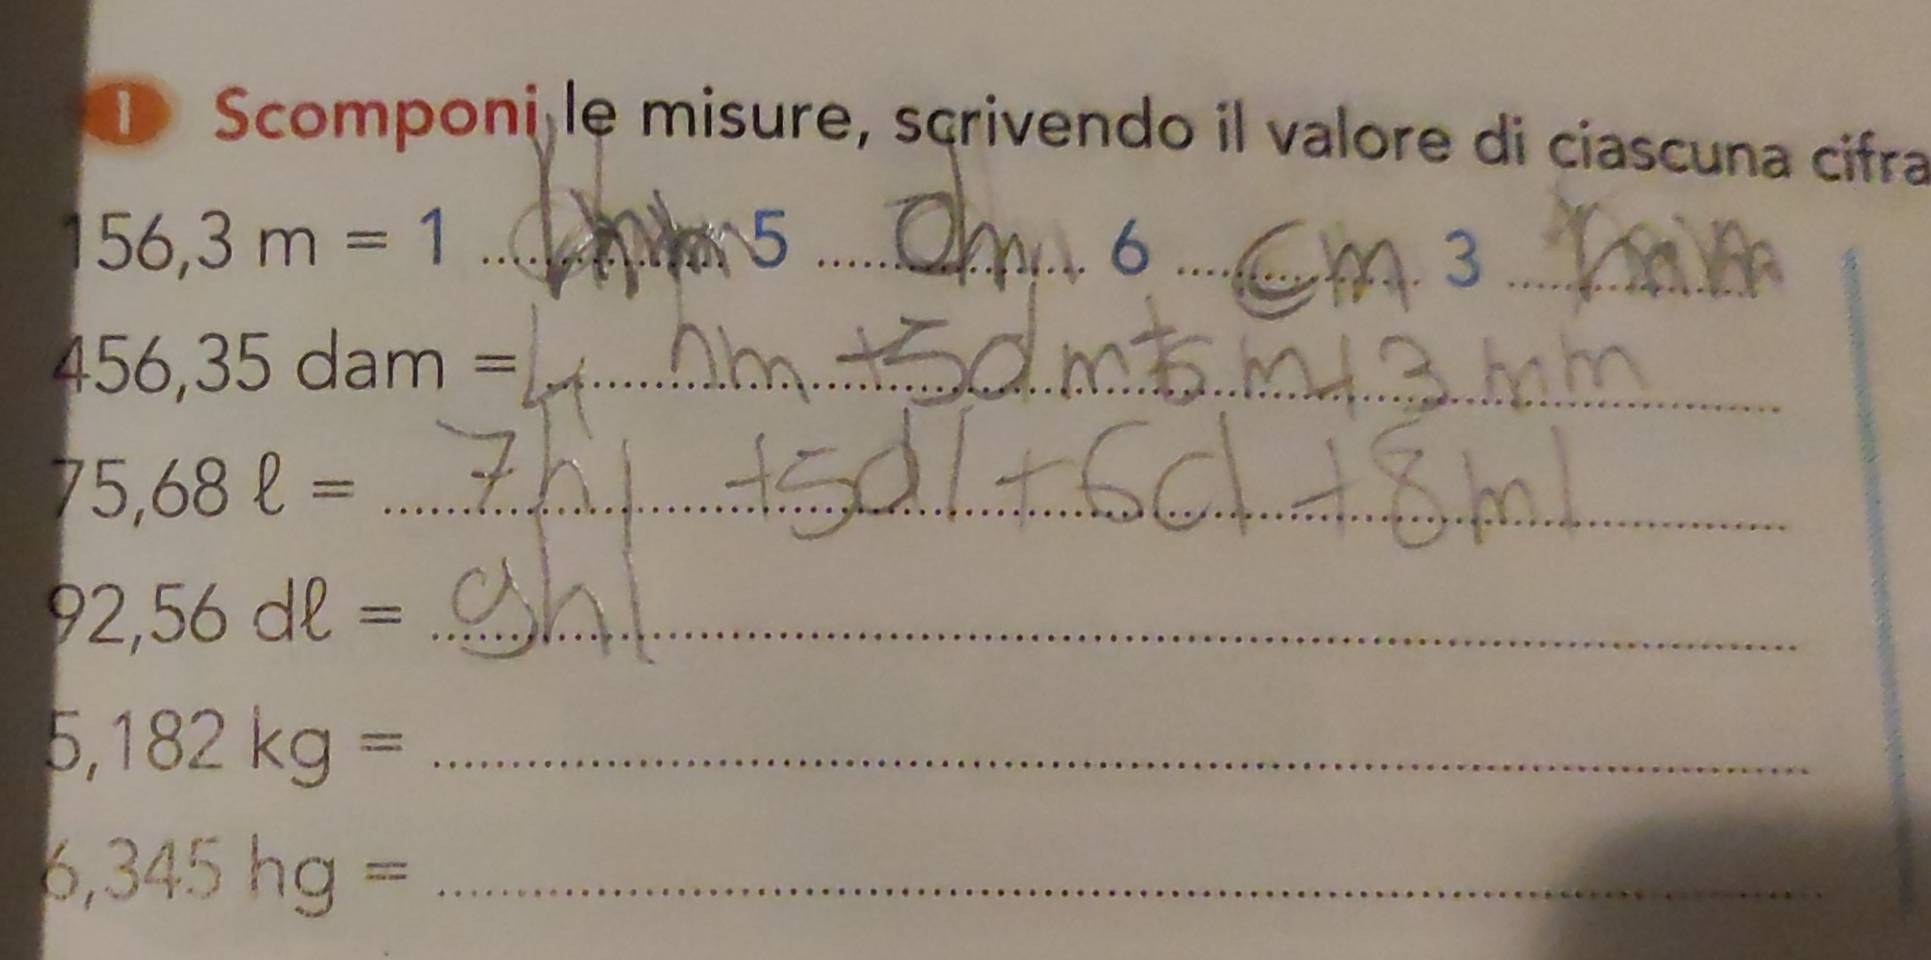 1 Scomponi le misure, scrivendo il valore di ciascuna cifra
156,3 m = 1 hm 5 dm 6 cm 3 mm
456,35 dam = 4 hm +5dm+6m+3mm
75,68 ℓ = 7hl +5dl+6cl+8ml
92,56 dℓ = 9hl
5,182 kg =
6,345 hg =